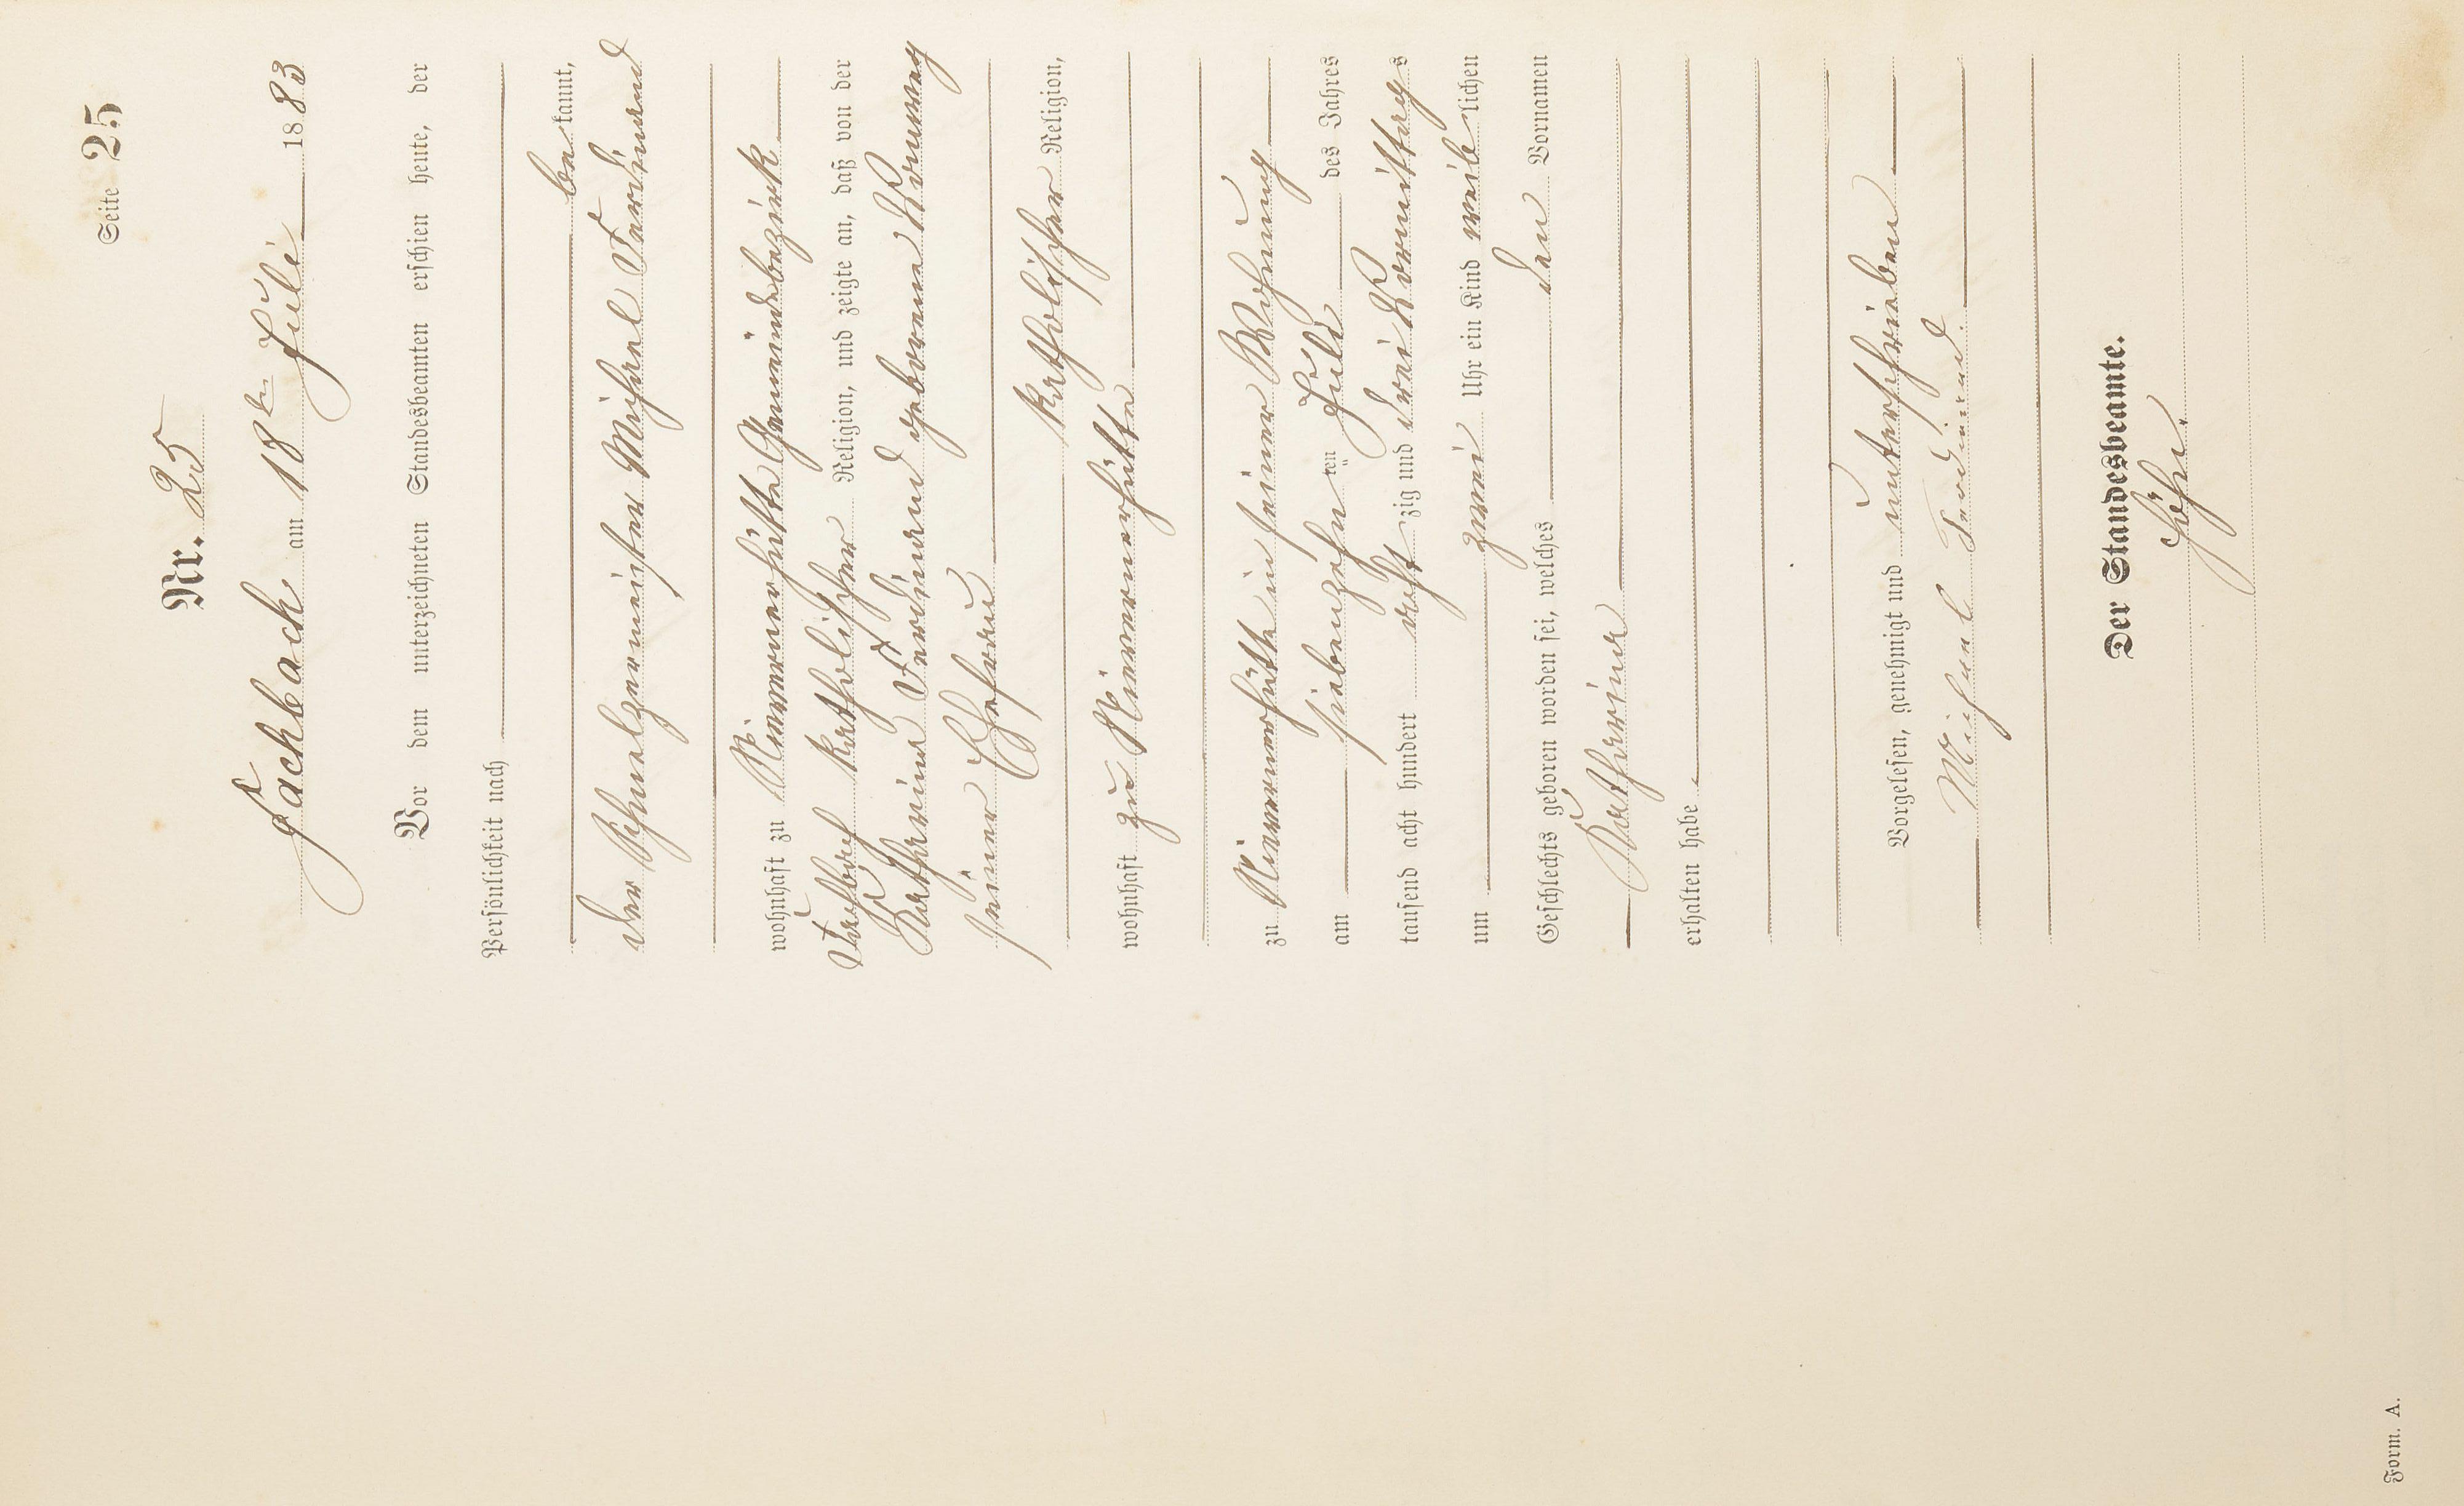 Seite 25
Nr. 25
Fachbach am 18ten Juli 1883
Vor dem unterzeichneten Standesbeamten erschien heute, der
Persönlichkeit nach
be kannt,
der Schmelzermeister Michael Ferdinand
wohnhaft zu Nieverner hütte Gemeindebezirk
Fachbach katholischer Religion, und zeigte an, daß von der
Katharina Ferdinand geborene
seiner Ehefrau
katholischer Religion,
wohnhaft zu Nievernerhütte
zu Nievernerhütte in seiner Wohnung
am siebenzehn ten Juli des Jahres
tausend acht hundert acht zig und drei Vormittags
um zwei Uhr ein Kind weib lichen
Geschlechts geboren worden sei, welches den Vornamen
Katharina
erhalten habe
Vorgelesen, genehmigt und unterschrieben
Michael Ferdinand.
Der Standesbeamte.
Form. A.